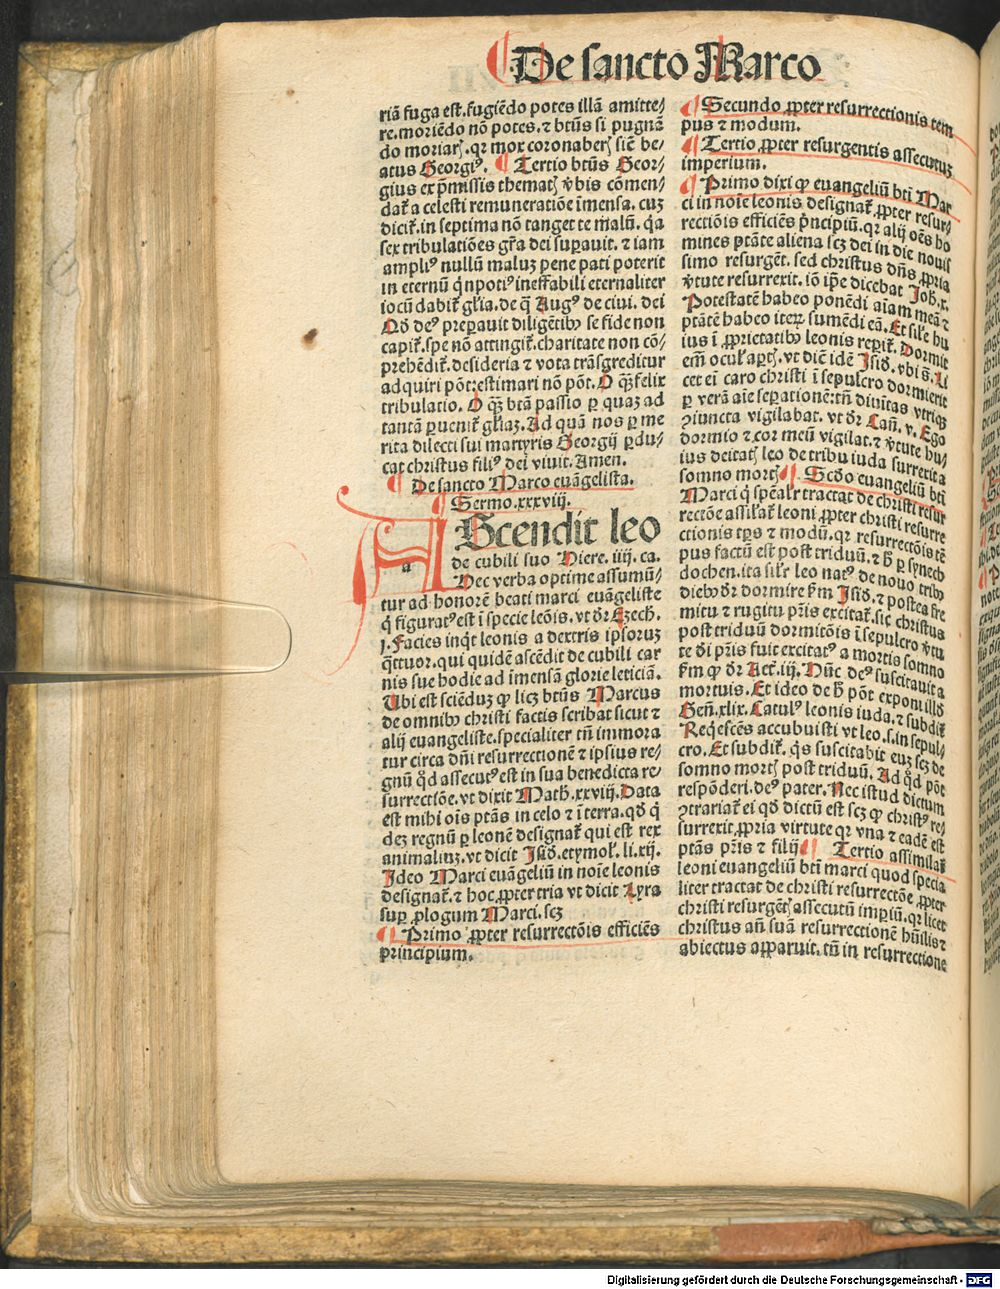 De sancto Marco
riā fuga est. fugiēdo potes illā amitte⸗
re. moriēdo nō potes. ⁊ btūs si pugnā
do moriaꝶ. qꝛ mox coronabeꝶ siē be⸗
atus Georgiꝰ. ¶ Tertio btūs Geor⸗
gius ex p̄missis thematꝭ v̄bis cōmen⸗
dat̄ a celesti remuneratiōe īmensa. cuꝫ
dicit̄. in septima nō tanget te malū. q̄a
sex tribulatiōes gr̄a dei suꝑauit. ⁊ iam
ampliꝰ nullū maluꝫ pene pati poterit
in eternū qͥnpotiꝰ ineffabili eternaliter
iocū dabit̄ gl̄ia. de q̄ Augꝰ de ciui. dei
Qd̄ deꝰ preꝑauit diligētibꝰ se fide non
capit̄. spe nō attingit̄. charitate non cō⸗
prehēdit̄. desideria ⁊ vota trāsgreditur
adquiri pōt: estimari nō pōt. O qͣꝫ felix
tribulatio. O qͣꝫ btā passio ꝑ quaꝫ ad
tantā ꝑuenit̄ gl̄iaꝫ. Ad quā nos ꝑ me
rita dilecti sui martyris Georgij ꝑdu⸗
cat christus filiꝰ dei viuit. Amen.
¶ De sancto Marco euāgelista.
¶ Sermo. xxxviij.
AScendit leo
a
de cubili suo Hiere. iiij. ca.
Hec verba optime assumū⸗
tur ad honorē beati marci euāgeliste
q̄ figuratꝰ est ī specie leōis. vt dr̄ Ezech.
j. Facies inqͥt leonis a dextris ipsoruꝫ
qͣttuor. qui quidē ascēdit de cubili car
nis sue hodie ad īmensā glorie leticiā.
Ubi est sciēduꝫ ꝙ licꝫ btūs Marcus
de omnibꝰ christi factis scribat sicut ⁊
alij euangeliste. specialiter tn̄ immora
tur circa dn̄i resurrectionē ⁊ ipsius re⸗
gnū qd̄ assecutꝰ est in sua benedicta re⸗
surrectiōe. vt dixit Math. xxviij. Data
est mihi oīs ptās in celo ⁊ ī terra. qd̄ qͥ
deꝫ regnū ꝑ leonē designat̄ qui est rex
animaliuꝫ. vt dicit Isid. etymol. li. xij.
Ideo Marci euāgeliū in noīe leonis
designat̄. ⁊ hoc ꝓpter tria vt dicit Lyra
suꝑ ꝓlogum Marci. scꝫ
¶ Primo ꝓpter resurrectōis efficiēs
principium.
¶ Secundo ꝓpter resurrectionis tem
pus ⁊ modum.
¶ Tertio ꝓpter resurgentis assecutuꝫ
imperium.
¶ Primo dixi ꝙ euangeliū bti Mar
ci in noīe leonis designat̄. ꝓpter resur⸗
rectiōis efficiēs p̄ncipiū. qꝛ alij oēs ho
mines ptāte aliena scꝫ dei in die nouis
simo resurgēt. sed christus dn̄s ꝓpria
v̄tute resurrexit. iō ip̄e dicebat Joh. x.
Potestatē habeo ponēdi aīam meā ⁊
ptātē habeo iteꝝ sumēdi eā. Et sil̄r hu
ius ī ꝓprietatibꝰ leonis reꝑit̄. Dormit
em̄ oculꝭ aꝑtꝭ. vt diē idē Isid. vbi s̄. Li
cet ei caro christi ī sepulcro dormierit
ꝑ verā aīe seꝑationē: tn̄ diuītas vtriqꝫ
ꝯiuncta vigilabat. vt dr̄ Cañ. v. Ego
dormio ⁊ cor meū vigilat. ⁊ v̄tute hu⸗
ius deitatꝭ leo de tribu iuda surrexit a
somno mortꝭ ¶ Scd̄o euangeliū bti
Marci qͥ sp̄ealr̄ tractat de christi resur
rectōe assilat̄ leoni ꝓpter christi resurre
ctionis tp̄s ⁊ modū. qꝛ resurrectōis tē
pus factū est post triduū. ⁊ h̄ ꝑ synech
dochen. ita sil̄r leo natꝰ de nouo tribꝰ
diebꝰ dr̄ dormire ẜm Isid. ⁊ postea fre
mitu ⁊ rugitu pr̄is excitat̄. sic christus
post triduū dormitōis ī sepulcro v̄tu
te di pr̄is fuit excitatꝰ a mortis somno
ẜm ꝙ dr̄ Act. iij. Hūc deꝰ suscitauit a
mortuis. Et ideo de h̄ pōt exponi illd̄
Geñ. xlix. Catulꝰ leonis iuda. ⁊ subdit̄
Reqͥescēs accubuisti vt leo. s. in sepul⸗
cro. Et subdit̄. qͥs suscitabit euꝫ scꝫ de
somno mortꝭ post triduū. Ad qd̄ pōt
respōderi. deꝰ pater. Nec istud dictum
ꝯtrariat̄ ei qd̄ dictū est scꝫ ꝙ christꝰ re⸗
surrexit ꝓpria virtute qꝛ vna ⁊ eadē est
ptās pr̄is ⁊ filij ¶ Tertio assimilat̄
leoni euangeliū bti marci quod specia
liter tractat de christi resurrectōe ꝓpter
christi resurgētꝭ assecutū imꝑiū. qꝛ licet
christus an̄ suā resurrectionē hūilis ⁊
abiectus apparuit. tn̄ in resurrectione
Digitalisierung gefördert durch die Deutsche Forschungsgemeinschaft - DFG